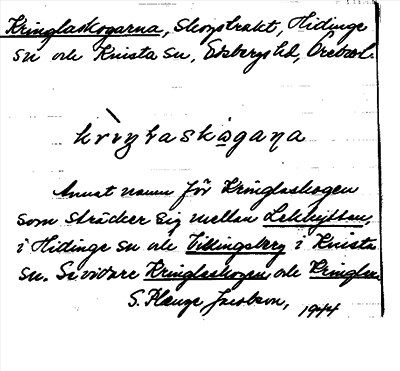 Kringlaskogarna, skogstrakt, Hidinge
sn och Knista sn, Edsbergs hd, Örebro l.
krìŋlaskogaṇa
Annat namn för Kringlaskogen
som sträcker sig mellan Lekhyttan,
i Hidinge sn och Villingsberg i Knista
sn. Se vidare Kringlaskogen och Kringlan.
S. Plenge Jacobson, 1944